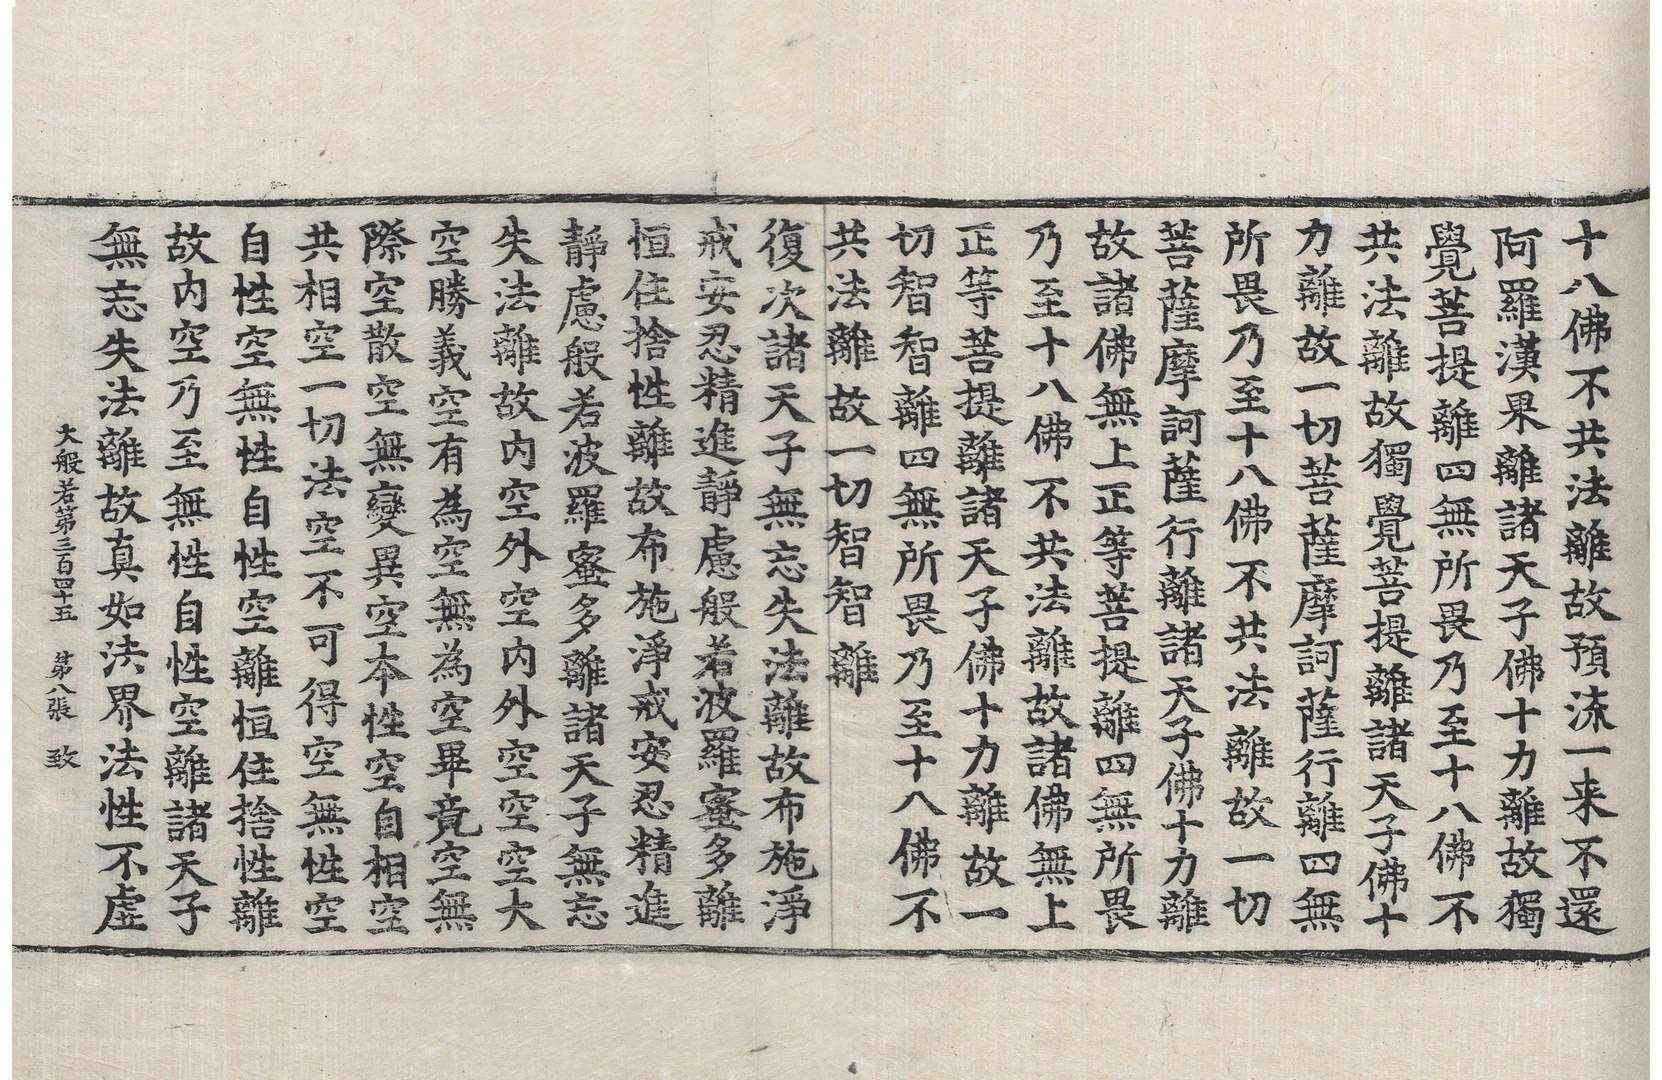 十八佛不共法離故預流一来不還
阿羅漢果離諸天子佛十力離故獨
覺菩提離四無所畏乃至十八佛不
共法離故獨覺菩提離諸天子佛十
力離故一切菩薩摩訶薩行離四無
所畏乃至十八佛不共法離故一切
菩薩摩訶薩行離諸天子佛十力離
故諸佛無上正等菩提離四無所畏
乃至十八佛不共法離故諸佛無上
正等菩提離諸天子佛十力離故一
切智智離四無所畏乃至十八佛不
共法離故一切智智離
復次諸天子無忘失法離故布施淨
戒安忍精進靜慮般若波羅蜜多離
恒住捨性離故布施淨戒安忍精進
靜慮般若波羅蜜多離諸天子無忘
失法離故内空外空内外空空空大
空勝義空有為空無為空畢竟空無
際空散空無變異空本性空自相空
共相空一切法空不可得空無性空
自性空無性自性空離恒住捨性離
故内空乃至無性自性空離諸天子
無忘失法離故真如法界法性不虛
大般若第三百四十五 第八張 致